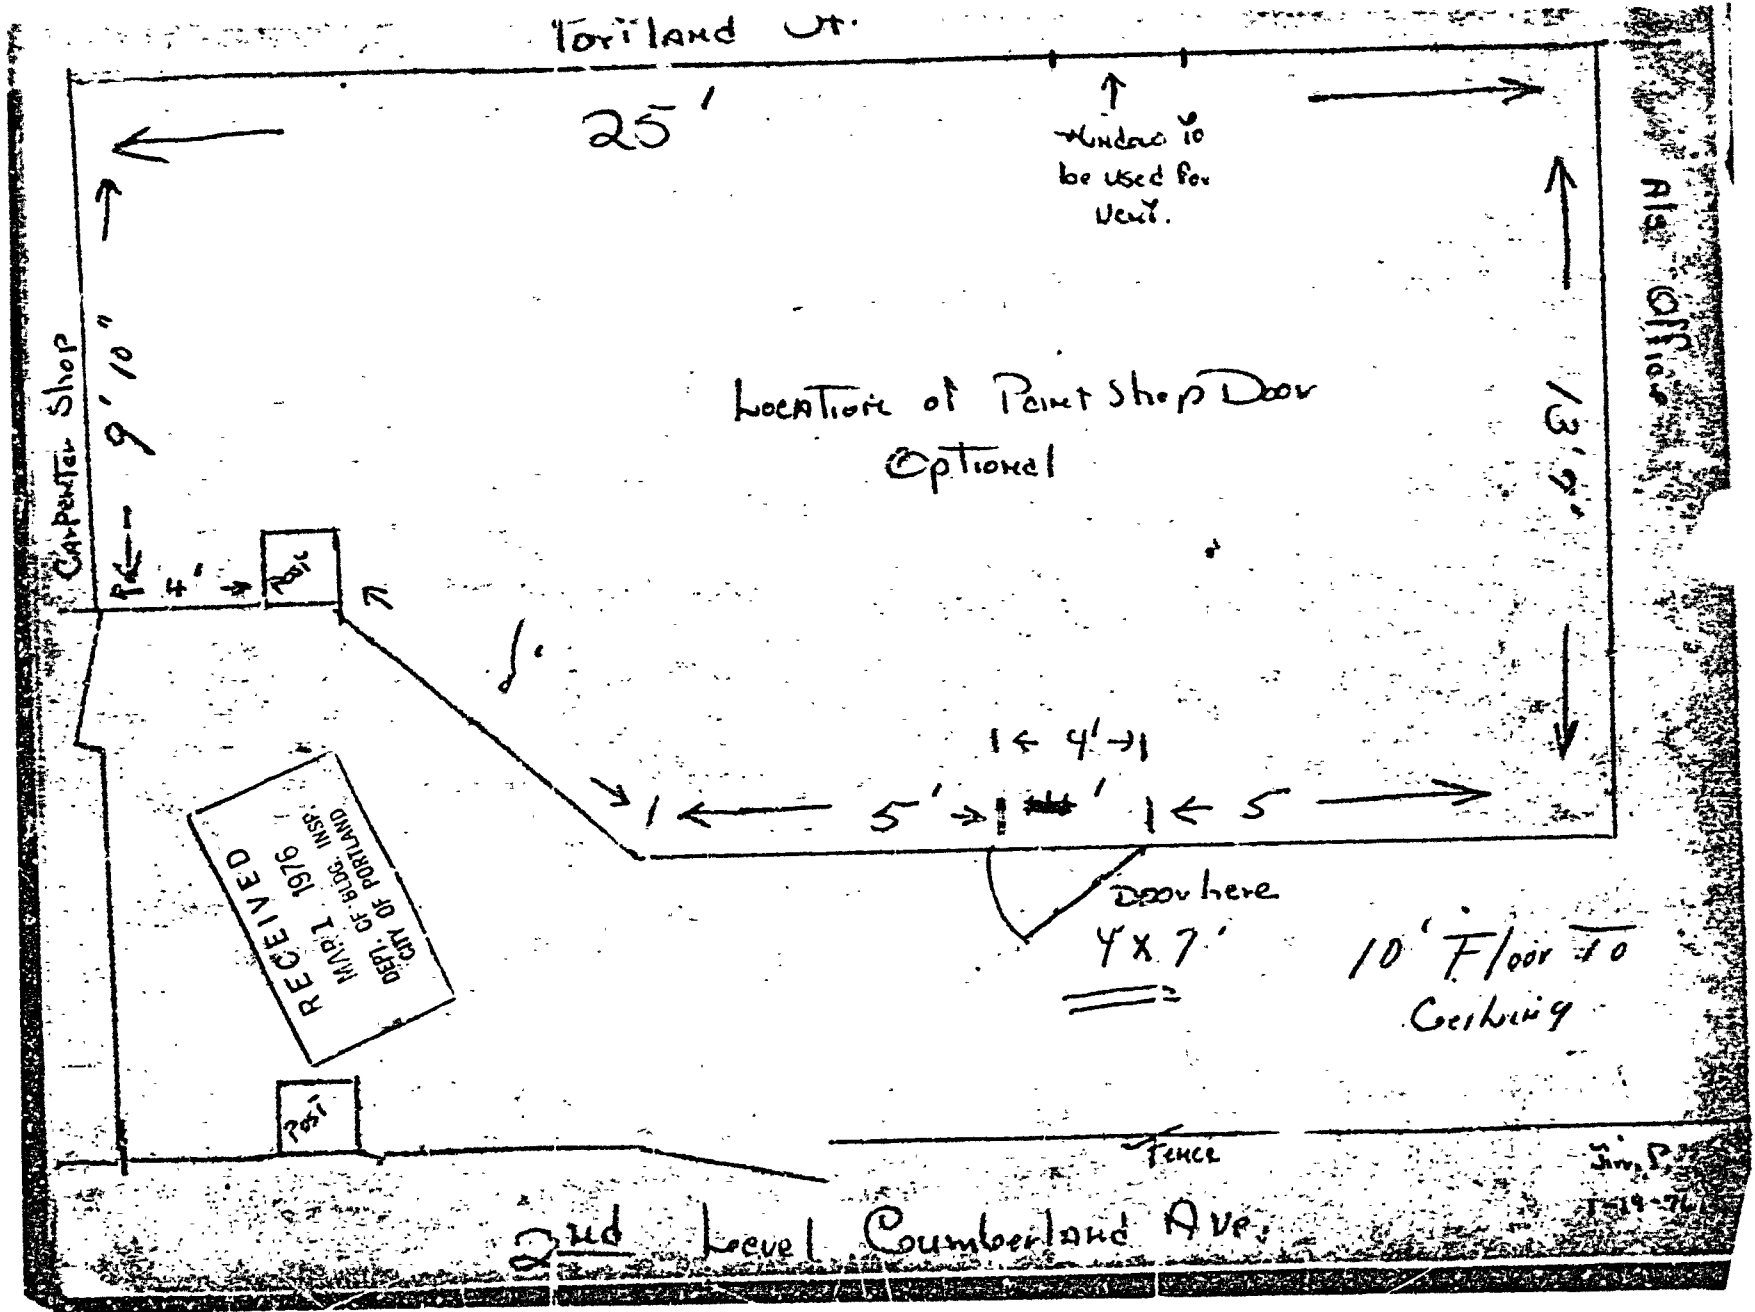 Portland St.
25'
Window to
be used for
Vent.
Carpenter Shop
9' 10"
4'
Post
Location of Paint Shop Door
Optional
13' 9"
4'
5'
5
Door here
4 x 7'
10' Floor to
Ceilwing
RECEIVED
MAR 1 1976
DEPT. OF BLDG. INSP.
CITY OF PORTLAND
Post
Fence
2nd Level Coumberland Ave.